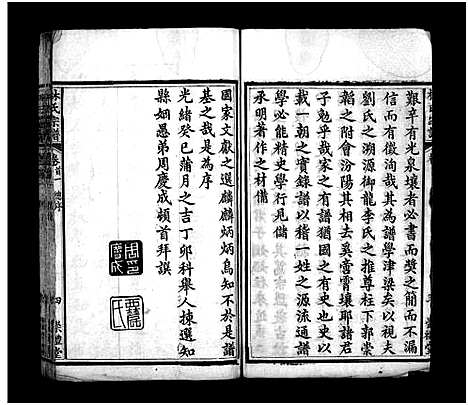 艱辛有光泉壤者必書而奨之簡而不漏
信而有徵洵哉其為譜學津梁矣以視夫
劉氏之溯源御龍李氏之推尊柱下郭崇
韜之附會汾陽其相去奚啻霄壤耶譜君
子勉乎哉家之有譜猶國之有史也史以
載一朝之實錄譜以稽一姓之源流通譜
學必能精史學行見儲
承明著作之材備
國家文獻之選麟麟炳炳烏知不於是譜
基之哉是為序
光緒癸巳蒲月之吉丁卯科舉人揀選知
縣姻愚弟周慶成頓首拜譔
林氏宗譜
卷首
總序
四
崇禮堂